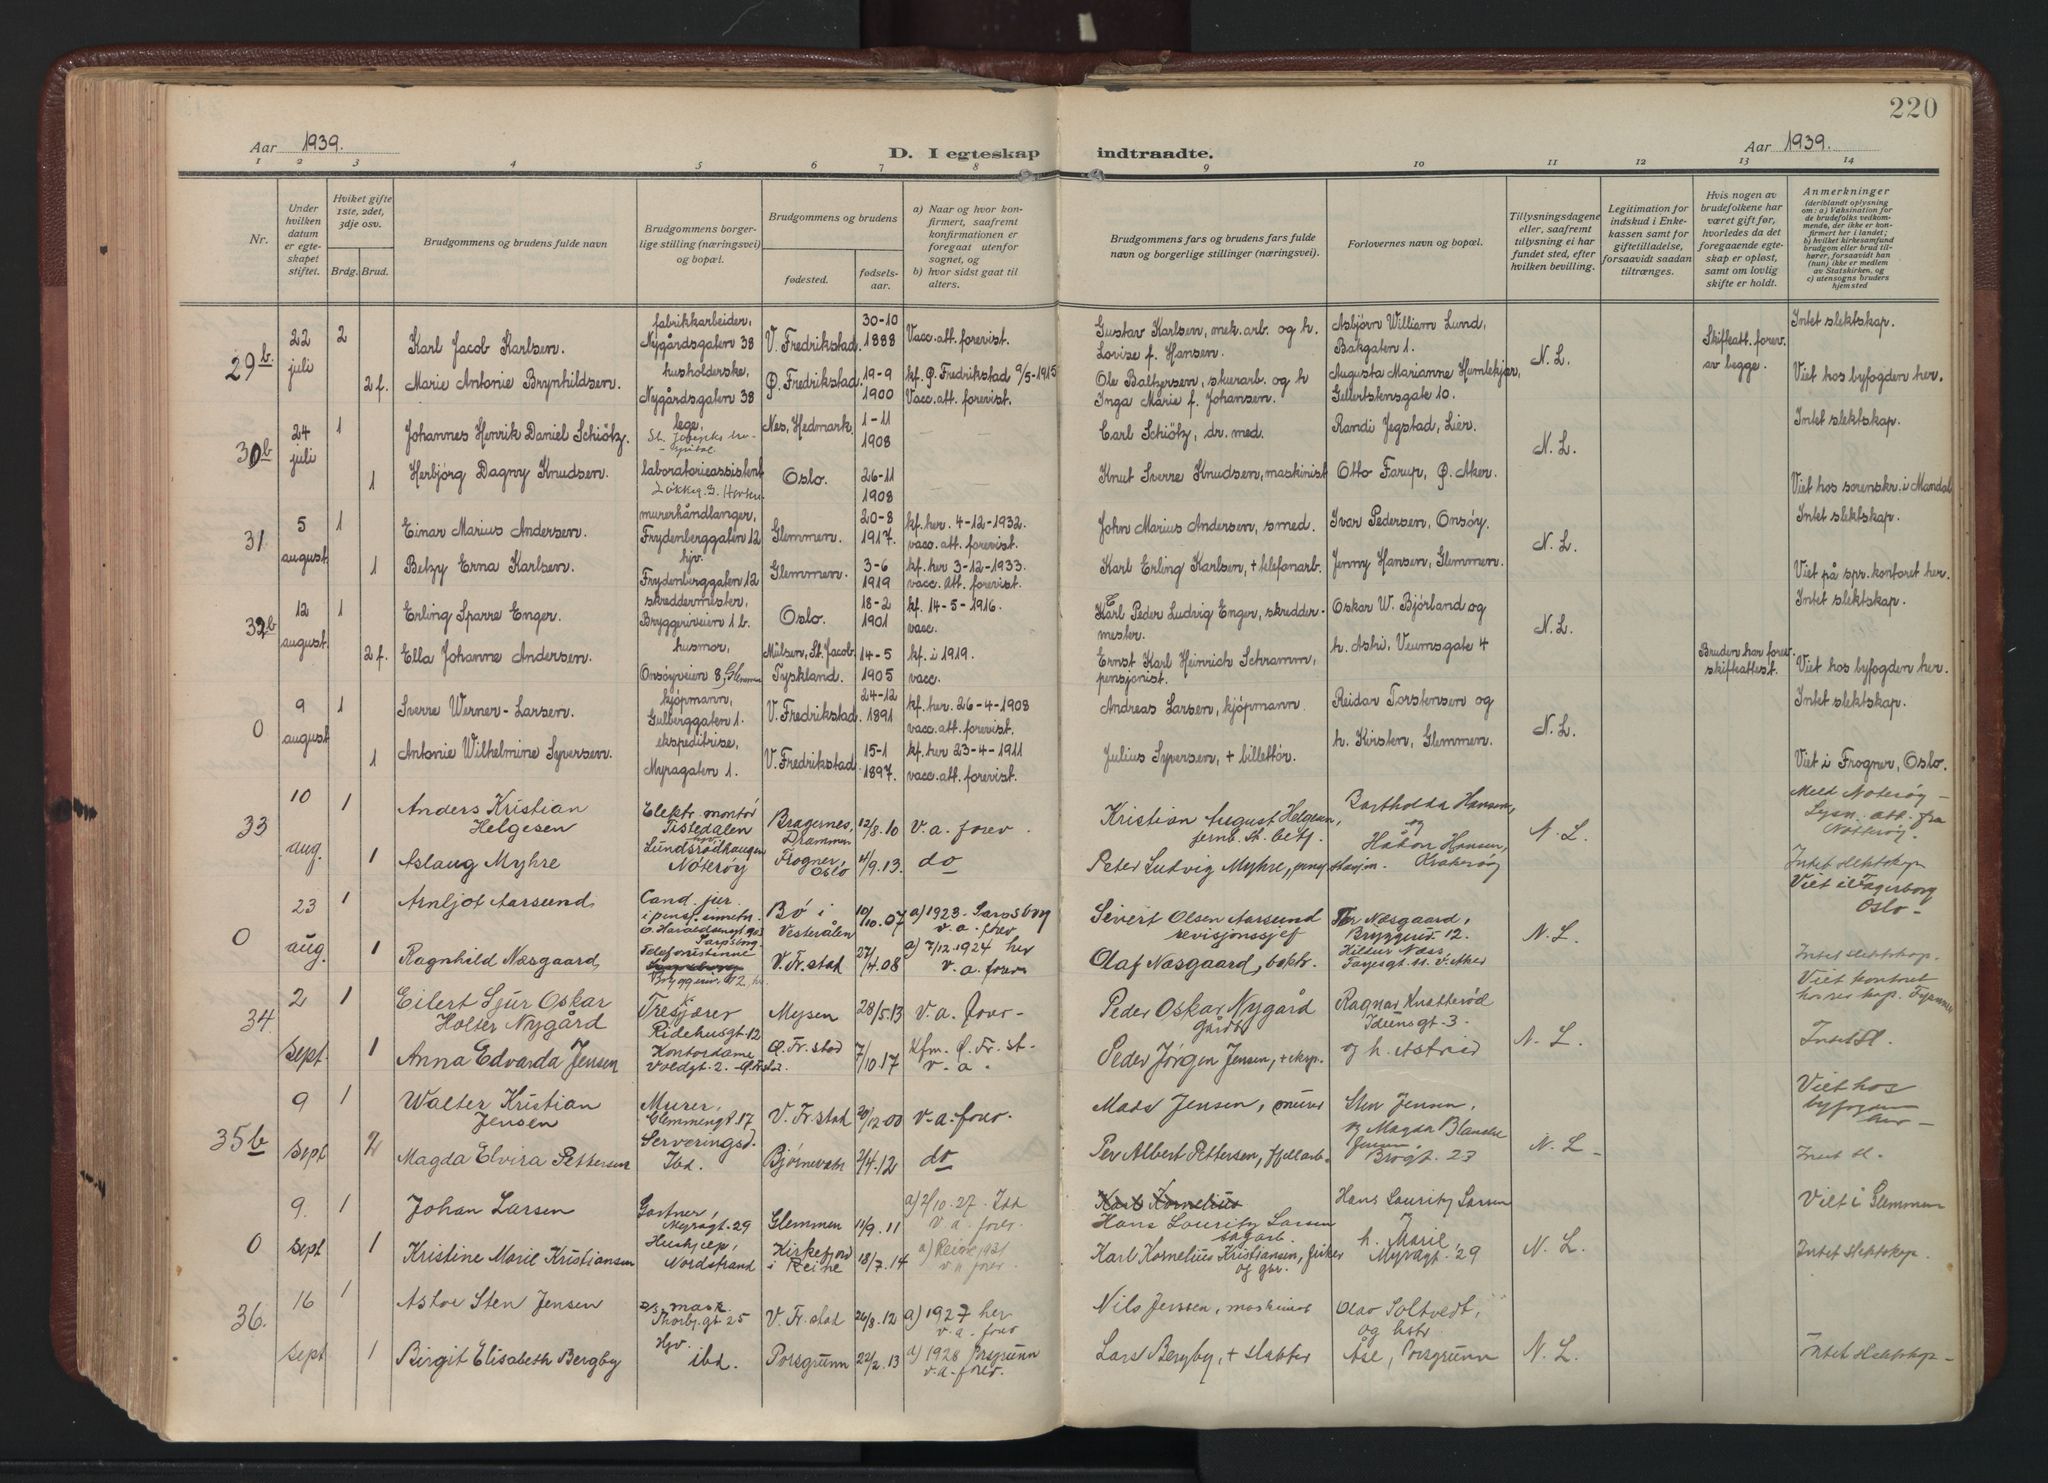 220
Aar 1939.
D. I egteskap indtraadte.
Aar 1939.
1 2 3 4 5 6 7 8 9 10 11 12 13 14
Nr.
Under hvilken datum er egteskapet stiftet.
Hviket gifte 1ste, 2det, 3dje osv.
Brdg. Brud.
Brudgommens og brudens fulde navn
Brudgommens borgerlige stilling (næringsvei) og bopæl.
Brudgommens og brudens
fødested.
fødselsaar.
a) Naar og hvor konfirmert, saafremt konfirmationen er foregaat utenfor sognet, og
b) hvor sidst gaat til alters.
Brudgommens fars og brudens fars fulde navn og borgerlige stillinger (næringsvei).
Forlovernes navn og bopæl.
Tillysningsdagene eller, saafremt tillysning ei har fundet sted, efter hvilken bevilling.
Legitimation for indskud i Enkekassen samt for giftetilladelse, forsaavidt saadan tiltrænges.
Hvis nogen av brudefolkene har været gift før, hvorledes da det foregaaende egteskap er opløst, samt om lovlig skifte er holdt.
Anmerkninger
(deriblandt oplysning om: a) Vaksination for de brudefolks vedkommende, der ikke er konfirmert her i landet; b) hvilket kirkesamfund brudgom eller brud tilhører, forsaavidt han (hun) ikke er medlem av Statskirken, og c) utensogns bruders hjemsted
29b 22 juli 2 Karl Jacob Karlsen. fabrikkarbeider, Nygårdsgaten 38 V. Fredrikstad. 30-10 1888 Vacc. att. forevist. Gustav Karlsen, mek. arb. og h. Lovise f. Hansen. Asbjörn William Lund, Bakgaten 1. N. L. Skifteatt. forev. av begge. Intet slektskap.
2 f. Marie Antonie Brynhildsen. husholderske, Nygårdsgaten 38 Ø. Fredrikstad. 19-9 1900 kf. Ø. Fredrikstad 9/5-1915 Vacc. att. forevist. Ole Baltzersen, skurarb. og h Inga Marie f. Johansen. Augusta Marianne Humlekjær, Gellertstensgate 10. Viet hos byfogden her.
30b 24 juli 1 Johannes Henrik Daniel Schiötz. lege, Nes, Hedmark. 1-11 1908 Carl Schiötz, dr. med. Randi Jegstad, Lier. N. L. Intet slektskap.
1 Herbjörg Dagny Knudsen. laboratorieassistent Oslo. 26-11 1908 Knut Sverre Knudsen, maskinist Otto Farup, Ø. Aker. Viet hos sorenskr. i Mandal
31. 5 august 1 Einar Marius Andersen. murerhåndlanger, Frydenberggaten 12 Glemmen. 20-8 1917. kf. her. 4-12-1932. vacc. att. forevist. John Marius Andersen, smed. Ivar Pedersen, Onsöy. N. L. Intet slektskap.
1 Betzy Erna Karlsen. hjv. Frydenberggaten 12 Glemmen. 3-6 1919 kf. her 3-12-1933. vacc. att. forevist. Karl Erling Karlsen, + telefonarb. Jenny Hansen, Glemmen. Viet på spr. kontoret her.
32b 12 august 1 Erling Sparre Enger. skreddermester, Bryggeriveien 1 b. Oslo. 18-2 1901 kf. 14-5-1916. vacc. Karl Peder Ludvig Enger, skreddermester. Oskar W. Björland og N. L. Intet slektskap.
2 f. Ella Johanne Andersen. husmor, Onsöyveien 8, Glemmen Mülsen, St. Jacob Tyskland. 14-5 1905 kf. i 1919. vacc. Ernst Karl Heinrich Schramm, pensjonist. h. Astri, Veumsgate 4 Bruden har forev. skifteattest. Viet hos byfogden her.
0 9 august 1 Sverre Werner-Larsen. kjöpmann, Gulberggaten 1. V. Fredrikstad 24-12 1891 kf. her. 26-4-1908 vacc. att. forevist. Andreas Larsen, kjöpmann. Reidar Torstensen og N. L. Intet slektskap.
1 Antonie Wilhelmine Syversen. ekspeditrise, Myragaten 1. V. Fredrikstad 15-1 1897. kf. her 23-4-1911 vacc. att. forevist. Julius Syversen, + billettör. h. Kirsten, Glemmen. Viet i Frogner, Oslo.
33 10 aug. 1 Anders Kristian Helgesen Elektr. montör Tistedalen Bragernes, Drammen 12/8.10 v. a. forev. Kristian August Helgesen, jernb. st. betj. Bartholda Hansen, og N. L. Meld Nøterøy - Lysn. att. fra Nøtterøy.
1 Aslaug Myhre Lundsrødhaugen Nøterøy Frogner, Oslo 4/9.13. do Peter Ludvig Myhre, Håkon Hansen, Kråkerøy Intet slektskap
0 23 aug. 1 Arnljot Aarsund Cand. jur. Sarpsborg. Bø i Vesterålen 10/10.07 a) 1923. Sarpsborg v. a. forev Sivert Olsen Aarsund revisjonssjef Tor Næsgaard, Bryggerivn. 12. N. L. Viet i Fagerborg Oslo -
1 Ragnhild Næsgaard Telefonistinne V. Fr. stad 27/4.08 a) 7/12.1924 her v. a. forev Olaf Næsgaard, Hildur Næss Intet slektskap.
34. 2 Sept 1 Eilert Sjur Oskar Holter Nygård Tresjærer Ridehusgt. 12 Mysen 28/5.13 v. a. forev. Peder Oskar Nygård gårdbr. Ragnar Knatterød Idunsgt. 3. N. L. Viet kontret
1 Anna Edvarda Jensen Kontordame Voldgt. 2. Ø. Fr. stad 7/10.17 Kfm. Ø. Fr. st. v. a. Peder Jörgen Jensen, + eksp. og h. Astrid Intet sl.
35b 9 Sept 1 Walter Kristian Jensen Murer, Glemmengt. 17 V. Fr. stad 20/12.00 v. a. forev. Mads Jensen, murer Sten Jensen, N. L. Viet hos byfogden her -
2 Magda Elvira Pettersen Serveringsd. Ibd. Bjørnevatn 2/4.12 do Per Albert Pettersen, fjellarb. og Magda Blanche Jensen, Brogt. 23 Intet sl.
0 9. Sept 1 Johan Larsen Gartner, Myragt. 29 Glemmen 11/9.11 a) 2/10.27. Ibd v. a. forev. Hans Lauritz Larsen sagarb. Hans Lauritz Larsen N. L. Viet i Glemmen
1 Kristine Marie Kristiansen Hushjelp, Nordstrand Kirkefjord i Reine 18/7.14 a) Reine 1931 v. a. forev. Karl Kornelius Kristiansen, fisker og gbr. h. Marie Myragt. 29 Intet slektskap.
36. 16 Sept 1 Astor Sten Jensen mask. Thorbj.gt. 25 V. Fr. stad 26/8.12 a) 1927 her v. a. forev Nils Jensen, maskinist Olav Soltvedt, og hstr. N. L.
1 Birgit Elisabeth Bergby Hjv. ibd. Porsgrunn 22/2.13 a) 1928 Porsgrunn v. a. forev. Lars Bergby, + slakter Åse, Porsgrunn Intet slektskap -